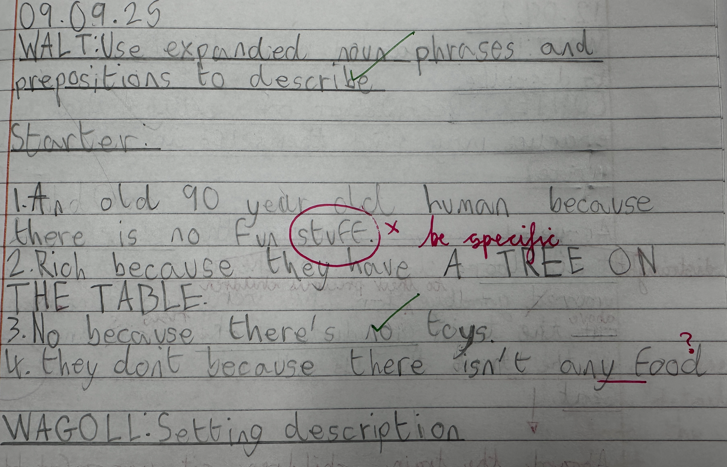 09.09.25
WALT: Use expanded noun phrases and
prepositions to describe
Starter:
1. An old 90 year old human because
there is no fun stuff. x be specific
2. Rich because they have A TREE ON
THE TABLE.
3. No because there's no toys.
?
4. they don't because there isn't any food
WAGOLL: Setting description